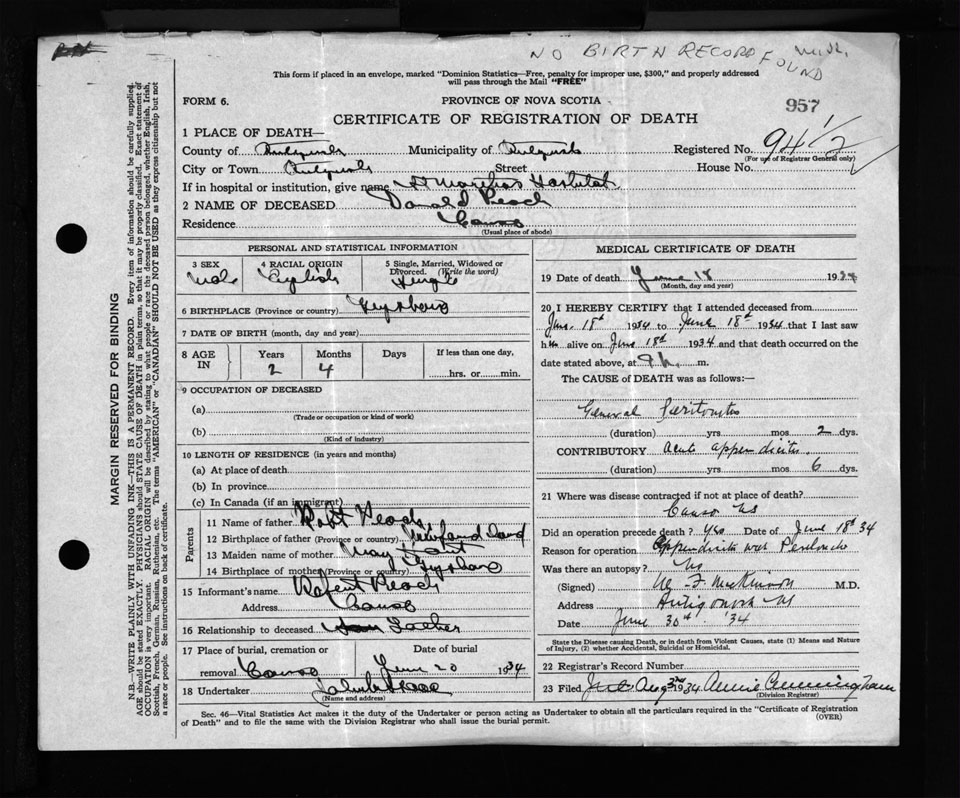 NO BIRTH RECORD
FOUND
This form if placed in an envelope, marked "Dominion Statistics—Free, penalty for improper use, $300," and properly addressed
will pass through the Mail "FREE"
FORM 6.
PROVINCE OF NOVA SCOTIA
957
CERTIFICATE OF REGISTRATION OF DEATH
1 PLACE OF DEATH—
County of Municipality of Registered No. 94 1/2
(For use of Registrar General only)
City or Town Street House No.
If in hospital or institution, give name St Marthas Hospital
2 NAME OF DECEASED Donald Peach
Residence Canso
(Usual place of abode)
PERSONAL AND STATISTICAL INFORMATION
3 SEX 4 RACIAL ORIGIN 5 Single, Married, Widowed or
Divorced. (Write the word)
Male English Single
6 BIRTHPLACE (Province or country)
7 DATE OF BIRTH (month, day and year)
8 AGE IN Years Months Days If less than one day,
2 4 hrs. or min.
9 OCCUPATION OF DECEASED
(a)
(Trade or occupation or kind of work)
(b)
(Kind of industry)
10 LENGTH OF RESIDENCE (in years and months)
(a) At place of death
(b) In province
(c) In Canada (if an immigrant)
Parents
11 Name of father Robt Peach
12 Birthplace of father (Province or country) Newfoundland
13 Maiden name of mother May
14 Birthplace of mother (Province or country)
15 Informant's name Robert Peach
Address Canso
16 Relationship to deceased Father
17 Place of burial, cremation or Date of burial
removal Canso June 20 1934
18 Undertaker
(Name and address)
MEDICAL CERTIFICATE OF DEATH
19 Date of death June 18 1934
(Month, day and year)
20 I HEREBY CERTIFY that I attended deceased from
June 18th 1934 to June 18th 1934 that I last saw
him alive on June 18th 1934 and that death occurred on the
date stated above, at 9 m.
The CAUSE of DEATH was as follows:—
General Peritonitis
(duration) yrs. mos 2 dys.
CONTRIBUTORY Acute appendicitis
(duration) yrs. mos 6 dys.
21 Where was disease contracted if not at place of death?
Canso NS
Did an operation precede death? Yes Date of June 18th 34
Reason for operation Appendicitis with Peritonitis
Was there an autopsy? No
(Signed) M.D.
Address Antigonish NS
Date June 30th '34
State the Disease causing Death, or in death from Violent Causes, state (1) Means and Nature
of Injury, (2) whether Accidental, Suicidal or Homicidal.
22 Registrar's Record Number
23 Filed Aug 3rd 1934 Annie Cunningham
(Division Registrar)
Sec. 46—Vital Statistics Act makes it the duty of the Undertaker or person acting as Undertaker to obtain all the particulars required in the "Certificate of Registration
of Death" and to file the same with the Division Registrar who shall issue the burial permit. (OVER)
MARGIN RESERVED FOR BINDING
N.B.—WRITE PLAINLY WITH UNFADING INK—THIS IS A PERMANENT RECORD. Every item of information should be carefully supplied.
AGE should be stated EXACTLY. PHYSICIANS should STATE CAUSE OF DEATH in plain terms, so that it may be properly classified. Exact statement of
OCCUPATION is very important. RACIAL ORIGIN will be described by stating to what people or race the deceased person belonged, whether English, Irish,
Scottish, French, German, Russian, Ruthenian, etc. The terms "AMERICAN" or "CANADIAN" SHOULD NOT BE USED as they express citizenship but not
a race or people. See instructions on back of certificate.